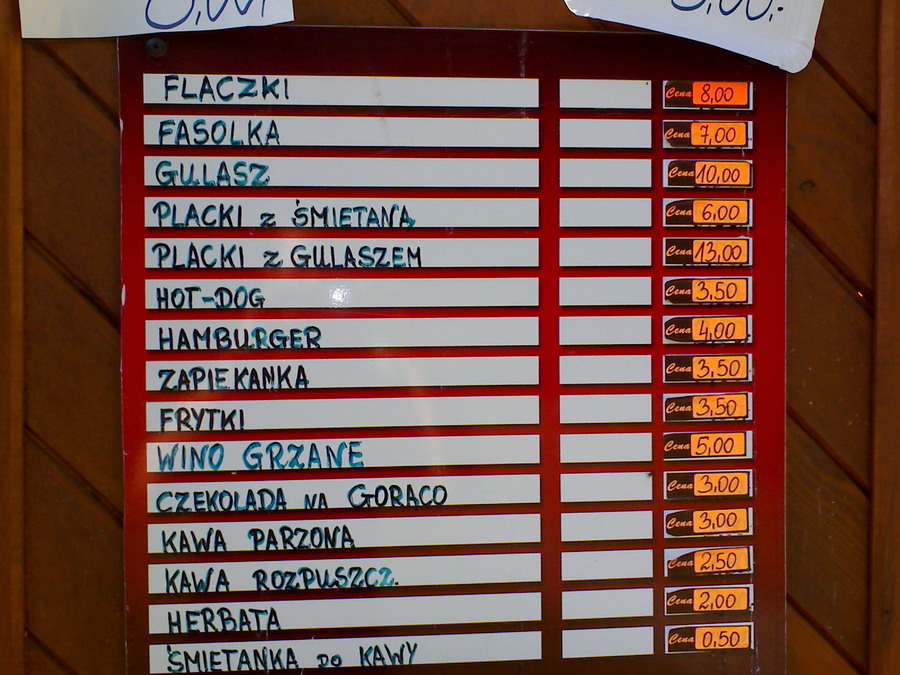 FLACZKI Cena 8,00
FASOLKA Cena 7,00
GULASZ Cena 10,00
PLACKI z ŚMIETANĄ Cena 6,00
PLACKI z GULASZEM Cena 13,00
HOT-DOG Cena 3,50
HAMBURGER Cena 4,00
ZAPIEKANKA Cena 3,50
FRYTKI Cena 3,50
WINO GRZANE Cena 5,00
CZEKOLADA NA GORĄCO Cena 3,00
KAWA PARZONA Cena 3,00
KAWA ROZPUSZCZ. Cena 2,50
HERBATA Cena 2,00
ŚMIETANKA DO KAWY Cena 0,50